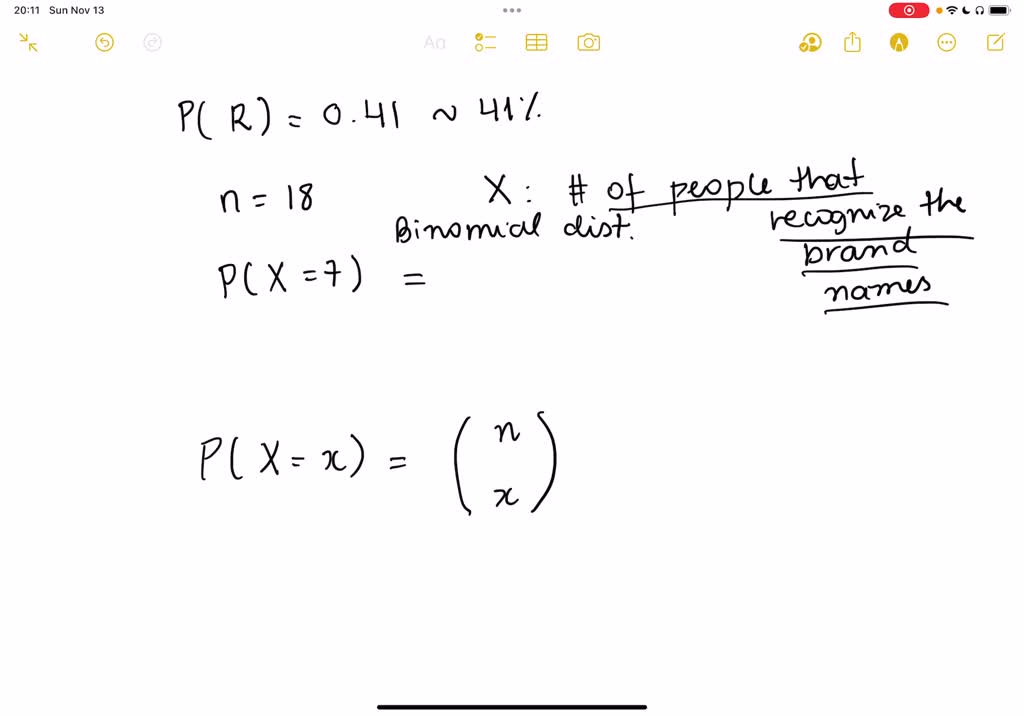 20:11 Sun Nov 13
Aa
P( R) = 0.41 ~ 41%
n = 18 X : # of people that
recognize the
Binomial dist.
brand
P(X =7) =
names
P( X = x) = ( n
x )